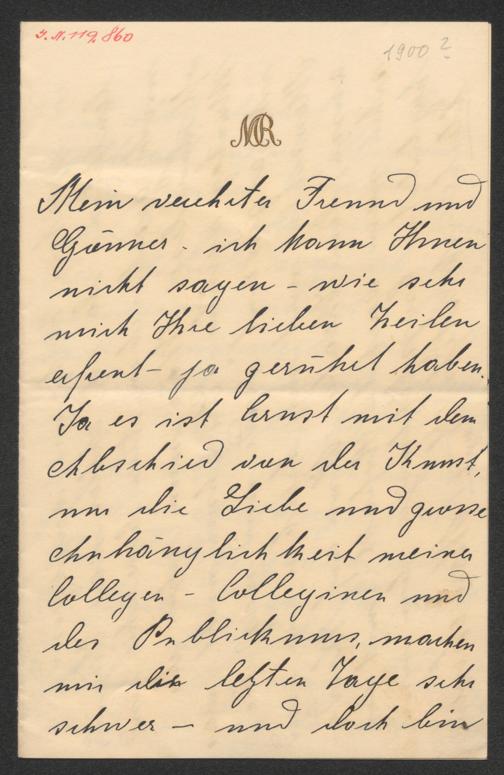 J.N.119.860
1900?
MR
Mein verehrter Freund und
Gönner. ich kann Ihnen
nicht sagen – wie sehr
mich Ihre lieben Zeilen
erfreut – ja gerührt haben.
Ja es ist Ernst mit dem
Abschied von der Kunst,
nur die Liebe und grosse
Anhänglichkeit meiner
Collegen – Colleginen und
des Publickums, machen
mir die letzten Tage sehr
schwer – und doch bin